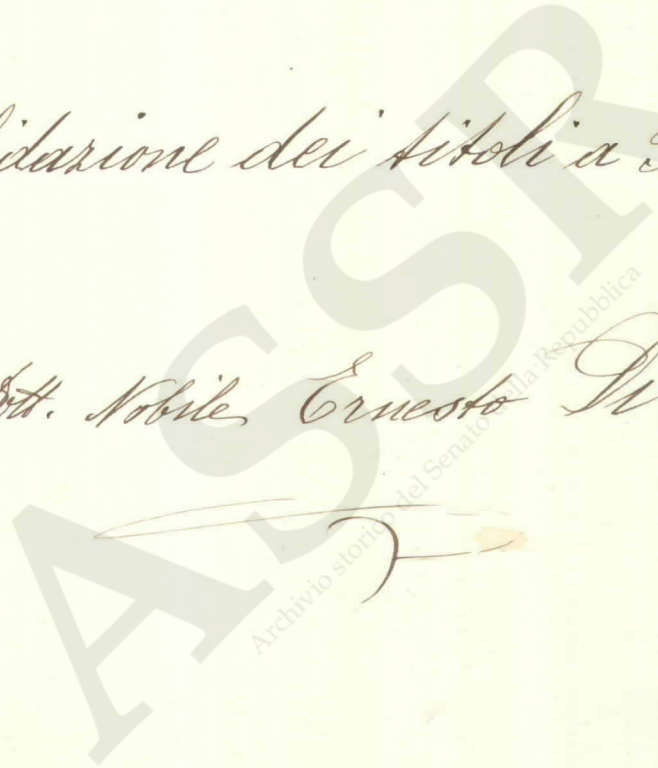 lidazione dei titoli a
Dott. Nobile Ernesto Di
ASSR
Archivio storico del Senato della Repubblica